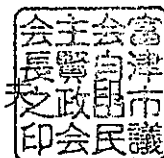 富津市議
会自由民
主賢政会
会長之印
夫